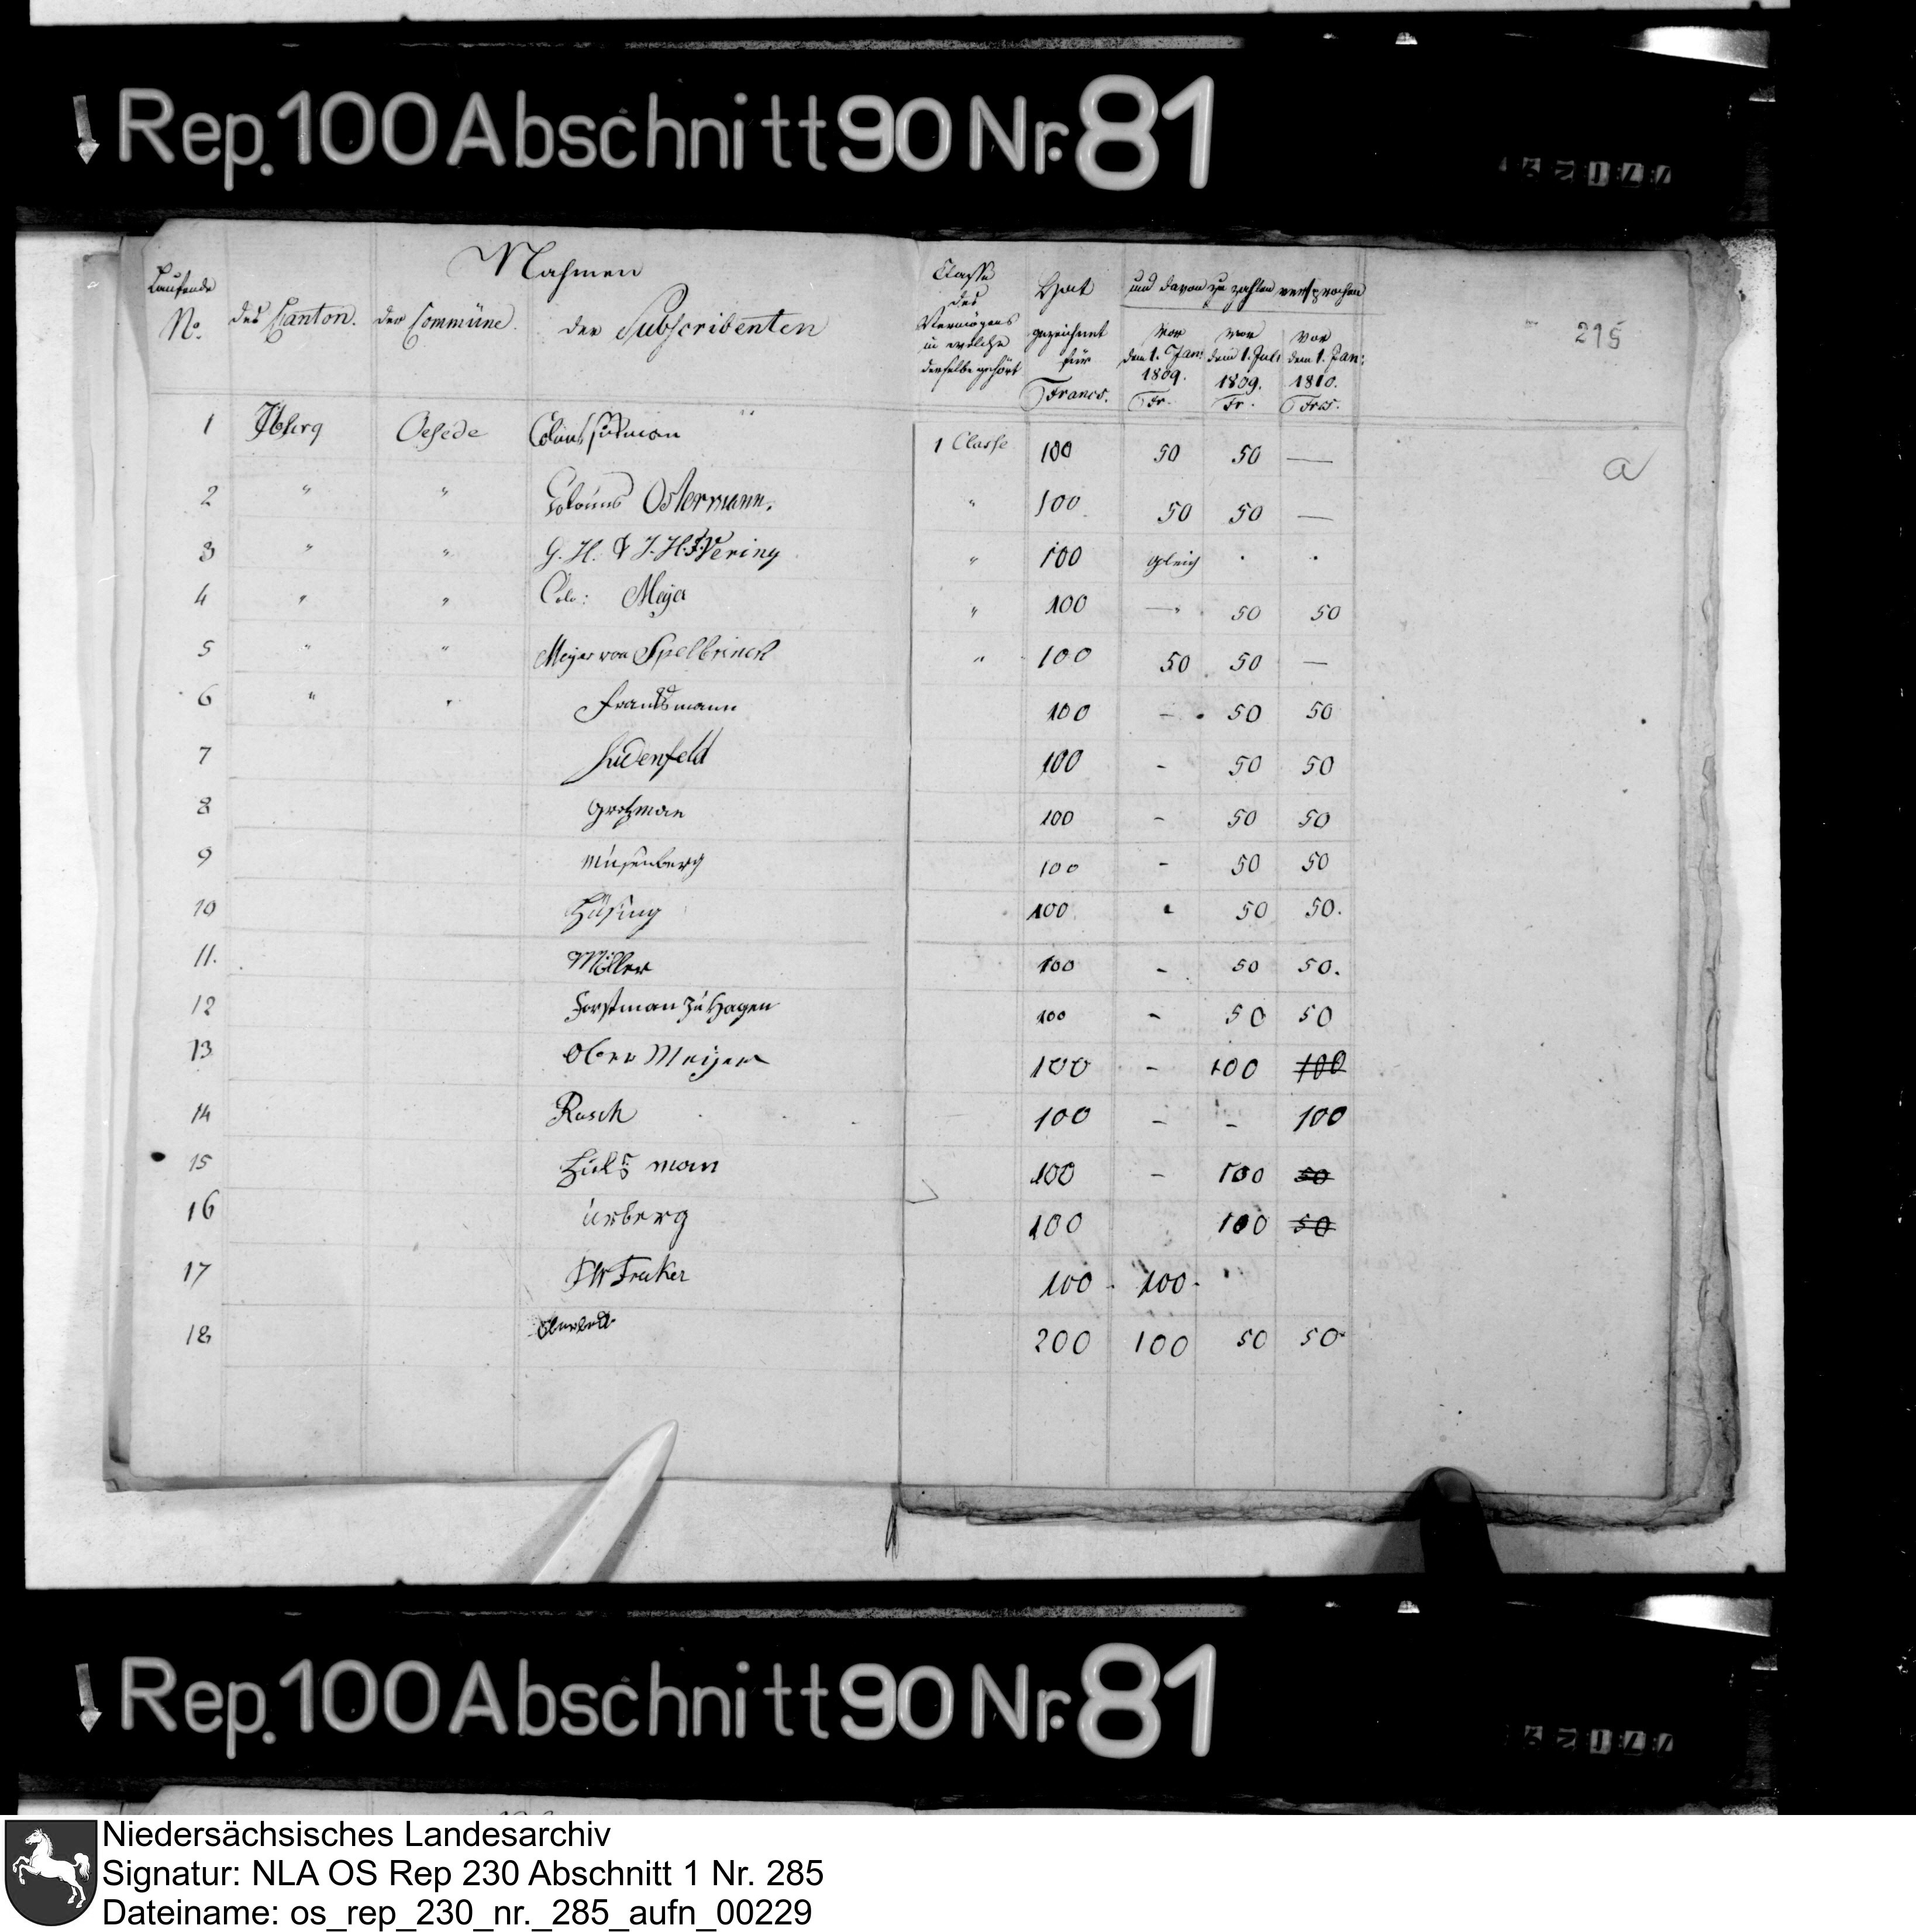 Rep. 100 Abschnitt 90 Nr. 81
Nahmen
Laufende No.
des Canton.
der Commüne.
der Subscribenten
Classe des Vermögens in welche derselbe gehört
Hat gezeichnet für Francs.
und davon zu zahlen versprochen
vor dem 1. Jan: 1809. Fr.
vor dem 1. Juli 1809. Fr.
vor dem 1. Jan: 1810. Frcs.
215
a
1 Iburg Oesede 1 Classe 100 50 50 —
2 " " Colonus Ostermann. " 100 50 50 —
3 " " G. H. & J. H. F. Vering " 100 gleich . .
4 " " Colo: Meyer " 100 — 50 50
5 " " Meyer von Spelbrinck " 100 50 50 —
6 " " 100 - 50 50
7 Südenfeld 100 - 50 50
8 Grotzman 100 - 50 50
9 Musenberg 100 - 50 50
10 Hüsing 100 - 50 50.
11. Möller 100 - 50 50.
12 Forstman zu Hagen 100 - 50 50
13 Ober Meyer 100 - 100 100
14 Rasch 100 - - 100
15 man 100 - 100 50
16 Urberg 100 100 50
17 Fraker 100 - 100 -
18 200 100 50 50
Rep. 100 Abschnitt 90 Nr. 81
Niedersächsisches Landesarchiv
Signatur: NLA OS Rep 230 Abschnitt 1 Nr. 285
Dateiname: os_rep_230_nr._285_aufn_00229